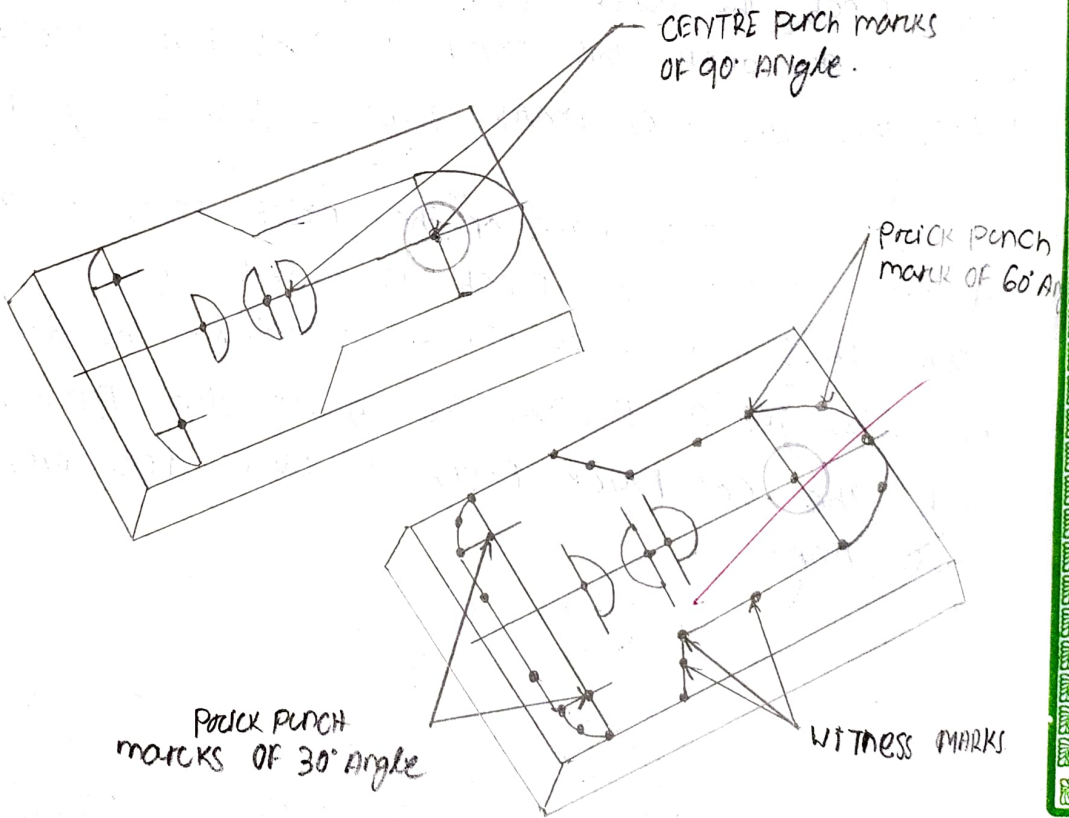 CENTRE punch marcks
OF 90° Angle.
Prick punch
marck OF 60° An
Prick punch
marcks OF 30° Angle
Witness MARKS